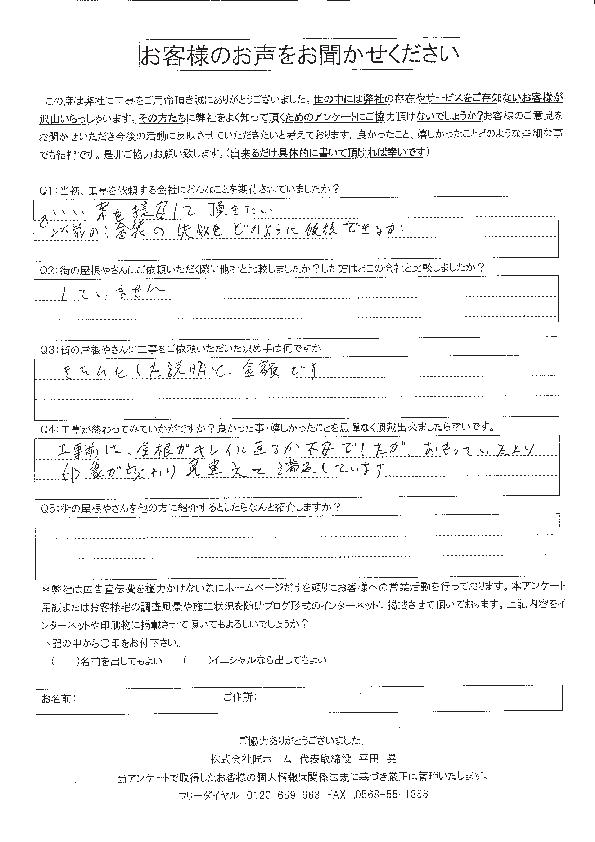 お客様のお声をお聞かせください
この度は弊社に工事をご用命頂き誠にありがとうございました。世の中には弊社の存在やサービスをご存知ないお客様が
沢山いらっしゃいます。その方たちに弊社をよく知って頂くためのアンケートにご協力頂けないでしょうか?お客様のご意見を
お聞かせいただき今後の活動に反映させていただきたいと考えております。良かったこと、嬉しかったことどのような些細な事
でも結構です。是非ご協力お願い致します。(出来るだけ具体的に書いて頂ければ幸いです)
Q1:当初、工事を依頼する会社にどんなことを期待されていましたか?
いい業を提案して頂きたい
以前の塗装の失敗をどのように修復できるか
Q2:街の屋根やさんにご依頼いただく際に他社と比較しましたか?した方はどこの会社と比較しましたか?
していません
Q3:街の屋根やさんに工事をご依頼いただいた決め手は何ですか
きちんとした説明と、金額です
Q4:工事が終わってみていかがですか?良かった事・嬉しかったことを忌憚なく頂戴出来ましたら幸いです。
工事前は、屋根がキレイに直るか不安でしたが、おもっていたより
印象が変わり見違えて満足しています
Q5:街の屋根やさんを他の方に紹介するとしたらなんと紹介しますか?
※弊社は広告宣伝費を極力かけない為にホームページだけを頼りにお客様への営業活動を行っております。本アンケート
用紙またはお客様宅の調査風景や施工状況を随時ブログ形式のインターネットに掲載させて頂いております。上記内容をイ
ンターネットや印刷物に掲載させて頂いてもよろしいでしょうか?
下記の中から〇印をお付下さい。
( )名前を出してもよい ( )イニシャルなら出してもよい
お名前: ご住所:
ご協力ありがとうございました。
ホーム 代表取締役 平田
当アンケートで取得したお客様の個人情報は関係法規に基づき厳正に管理いたします。
フリーダイヤル 0120 FAX 0568-55-